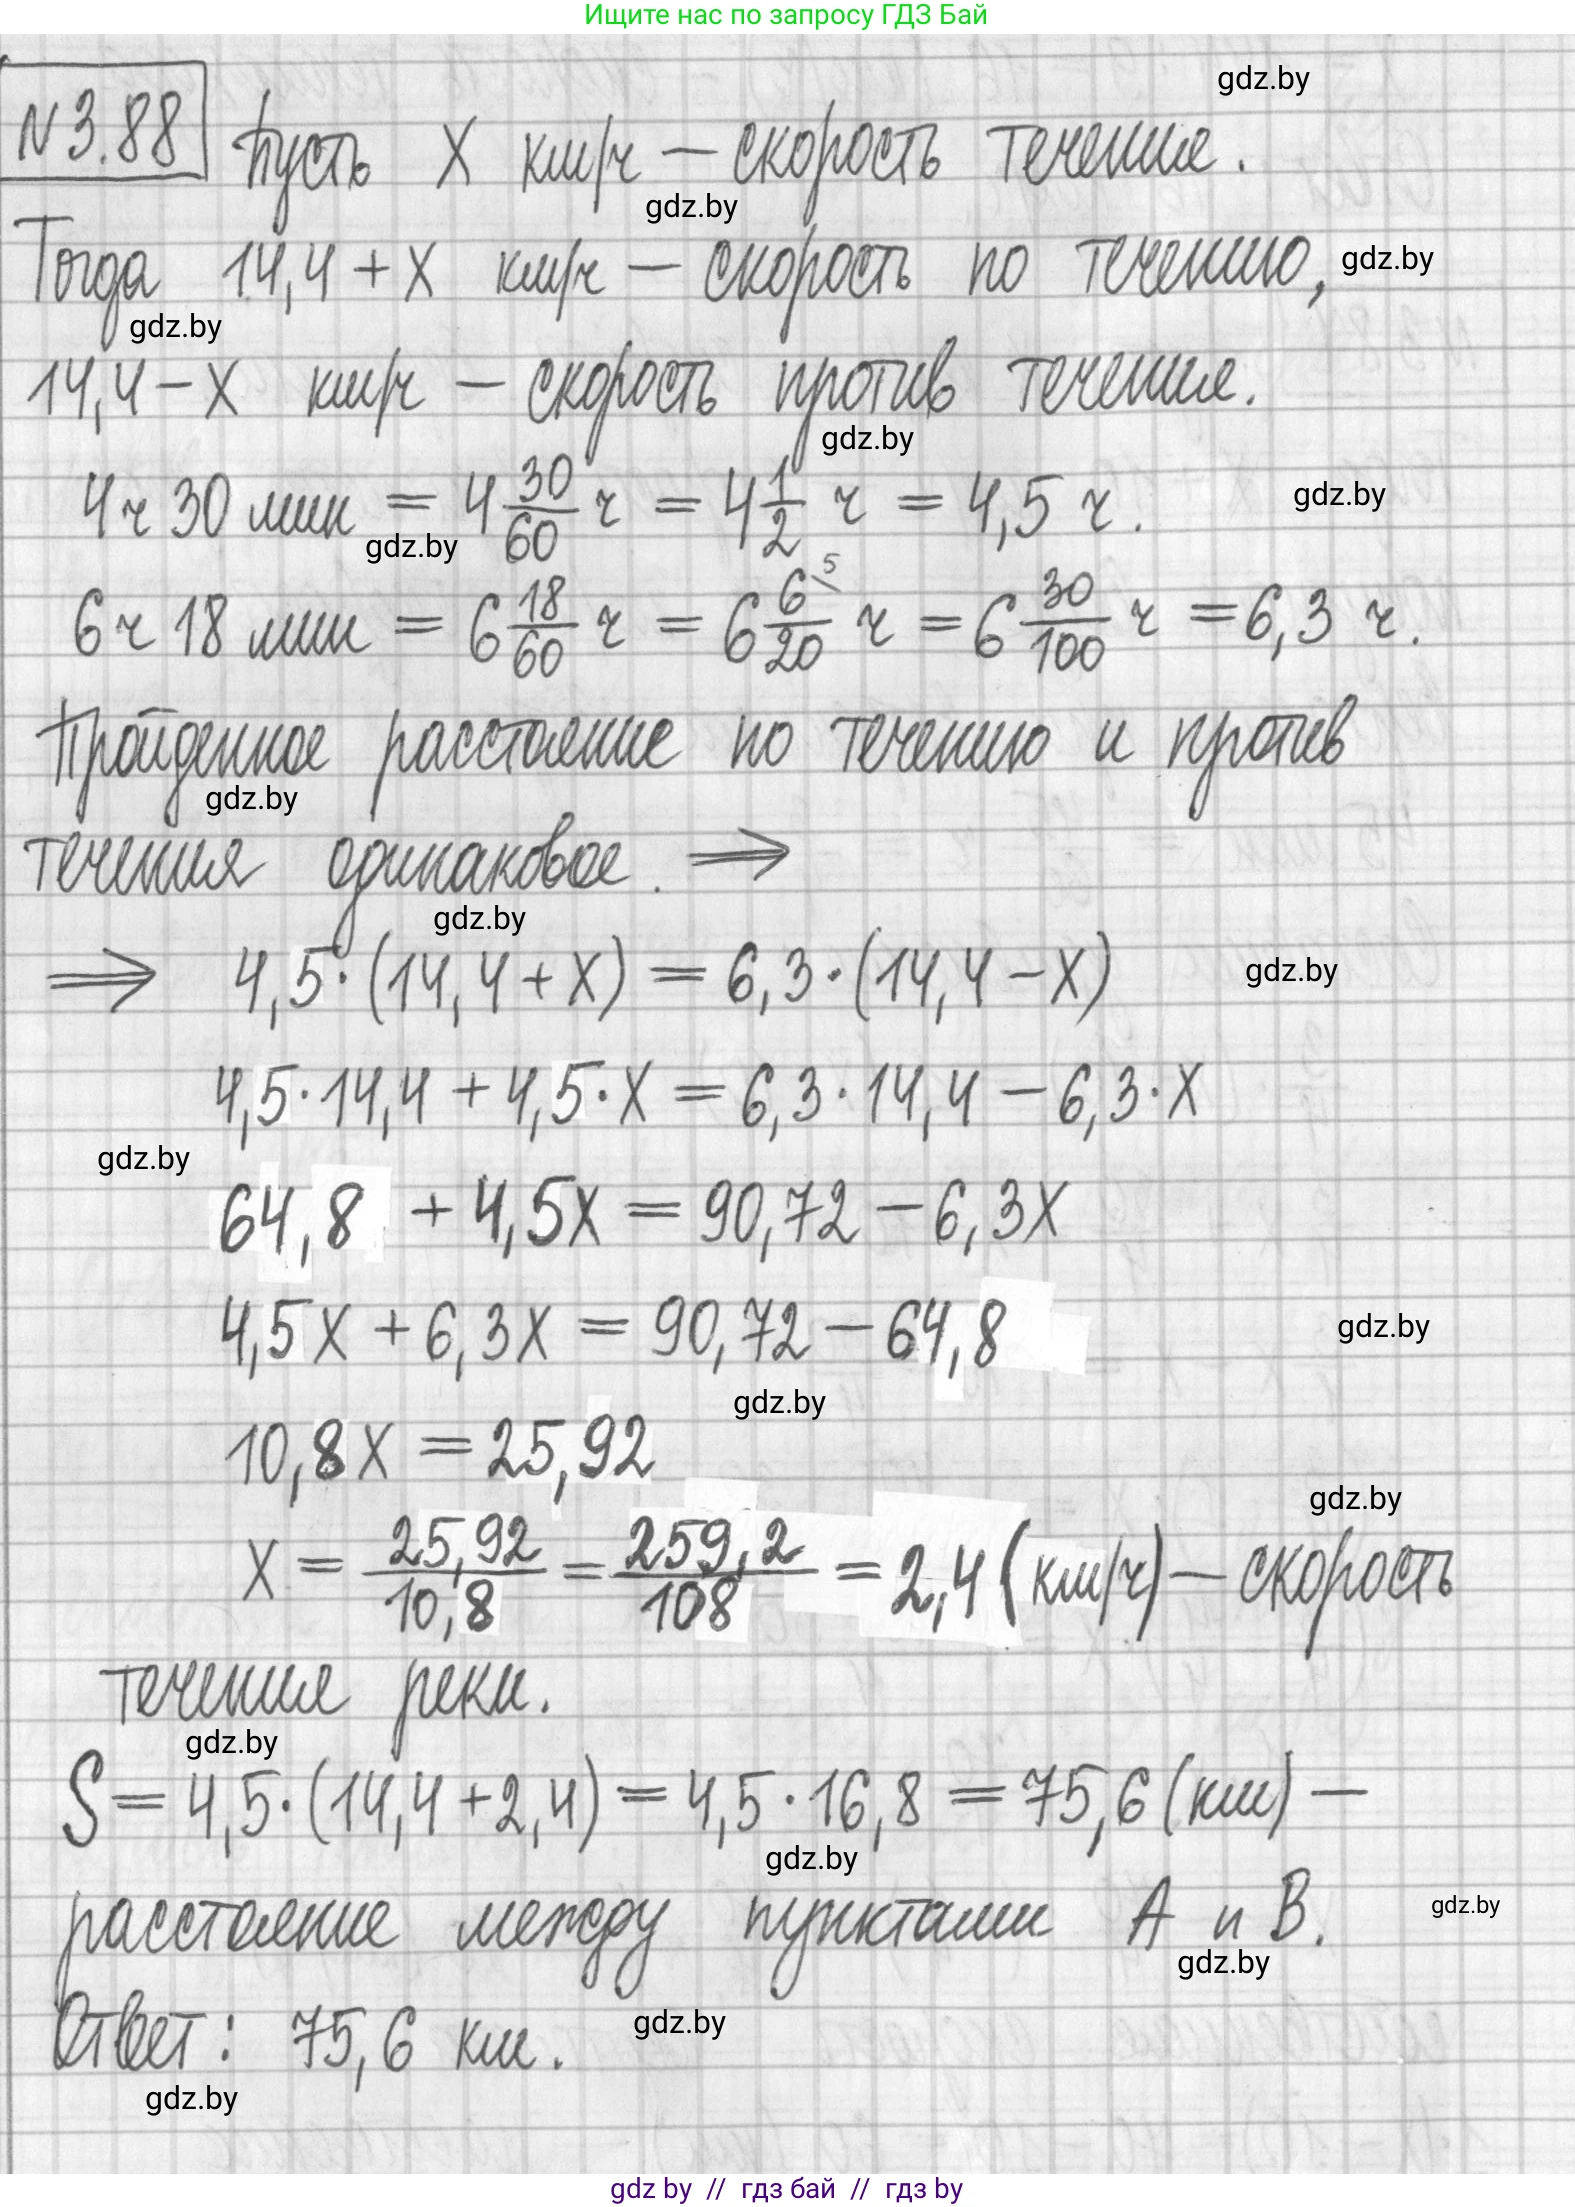 Ищите нас по запросу ГДЗ Бай
gdz.by
N 3.88 Пусть x км/ч — скорость течения.
gdz.by
Тогда 14,4 + x км/ч — скорость по течению, gdz.by
gdz.by
14,4 − x км/ч — скорость против течения.
gdz.by
4 ч 30 мин = 4 30/60 ч = 4 1/2 ч = 4,5 ч. gdz.by
gdz.by
6 ч 18 мин = 6 18/60 ч = 6 6\5/20 ч = 6 30/100 ч = 6,3 ч.
Пройденное расстояние по течению и против
gdz.by
течения одинаковое. ⇒
gdz.by
⇒ 4,5·(14,4 + x) = 6,3·(14,4 − x) gdz.by
4,5·14,4 + 4,5·x = 6,3·14,4 − 6,3·x
gdz.by
64,8 + 4,5x = 90,72 − 6,3x
4,5x + 6,3x = 90,72 − 64,8 gdz.by
gdz.by
10,8x = 25,92
gdz.by
x = 25,92/10,8 = 259,2/108 = 2,4 (км/ч) — скорость
течения реки.
gdz.by
S = 4,5·(14,4 + 2,4) = 4,5·16,8 = 75,6 (км) —
gdz.by
расстояние между пунктами A и B. gdz.by
gdz.by
Ответ: 75,6 км. gdz.by
gdz.by
gdz by // гдз бай // гдз by